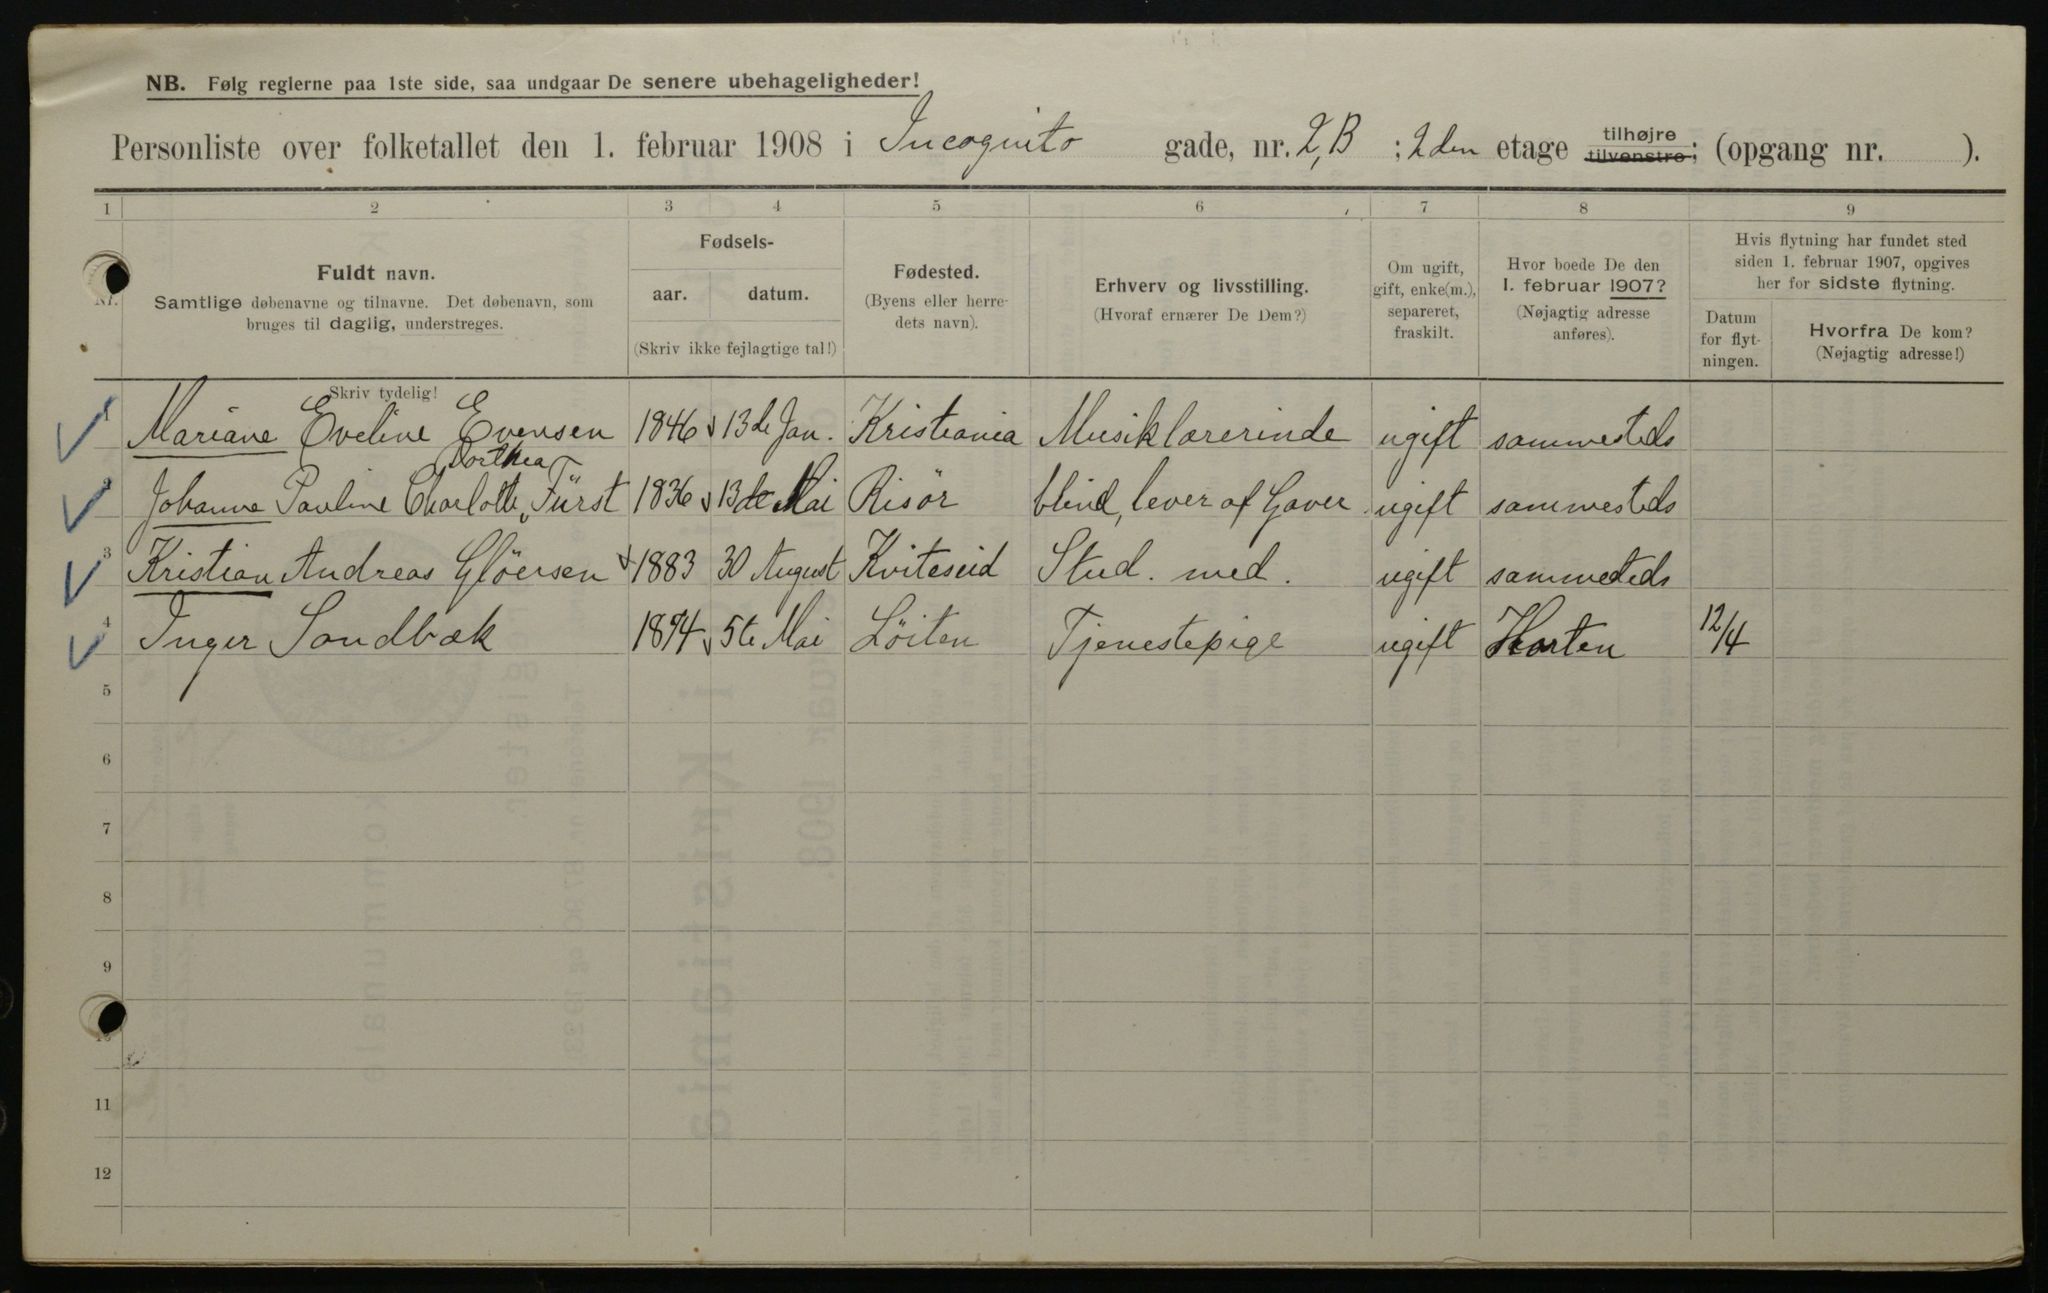 NB. Følg reglerne paa 1ste side, saa undgaar De senere ubehageligheder!
Personliste over folketallet den 1. februar 1908 i Incognito gade, nr. 2,B ; 2den etage tilhøjre tilvenstre; (opgang nr. ).
1 2 3 4 5 6 7 8 9
Nr. Fuldt navn. Samtlige døbenavne og tilnavne. Det døbenavn, som bruges til daglig, understreges.
Fødsels- aar. datum. (Skriv ikke fejlagtige tal!)
Fødested. (Byens eller herredets navn).
Erhverv og livsstilling. (Hvoraf ernærer De Dem?)
Om ugift, gift, enke(m.), separeret, fraskilt.
Hvor boede De den 1. februar 1907? (Nøjagtig adresse anføres).
Hvis flytning har fundet sted siden 1. februar 1907, opgives her for sidste flytning.
Datum for flytningen.
Hvorfra De kom? (Nøjagtig adresse!)
Skriv tydelig!
1 Mariane Eveline Evensen 1846 13de Jan. Kristiania Musiklærerinde ugift sammesteds
2 Johanne Pauline Charlotte Dorthea Fürst 1836 13de Mai Risör blind, lever af Gaver ugift sammesteds
3 Kristian Andreas Glöersen 1883 30 August Kviteseid Stud. med. ugift sammesteds
4 Inger Sandbæk 5te Mai Löiten Tjenestepige ugift Horten 12/4
5
6
7
8
9
10
11
12